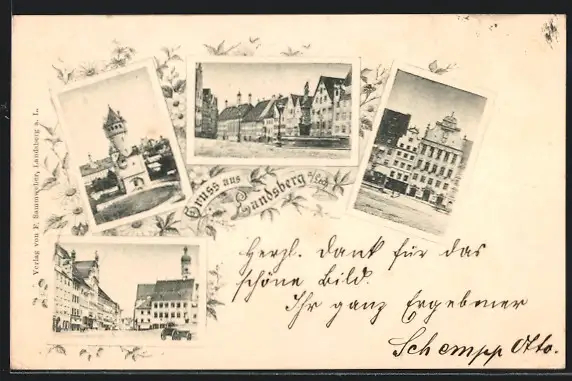 Verlag von F. Sammweber, Landsberg a. L.
Gruss aus Landsberg a/Lech
Herzl. Dank für das
schöne Bild.
Ihr ganz Ergebener
Schempp Otto.